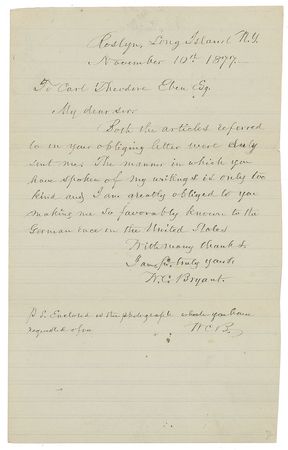 Roslyn, Long Island N.Y.
November 10th 1877.
To Carl Theodore Eben Esq.
My dear sir.
Both the articles referred
to in your obliging letter were duly
sent me. The manner in which you
have spoken of my writings is only too
kind and I am greatly obliged to you
making me so favorably known to the
German race in the United States
With many thanks
I am, sir, truly yours
W. C. Bryant.
P.S. Enclosed is the photograph which you have
requested of me
W C B.